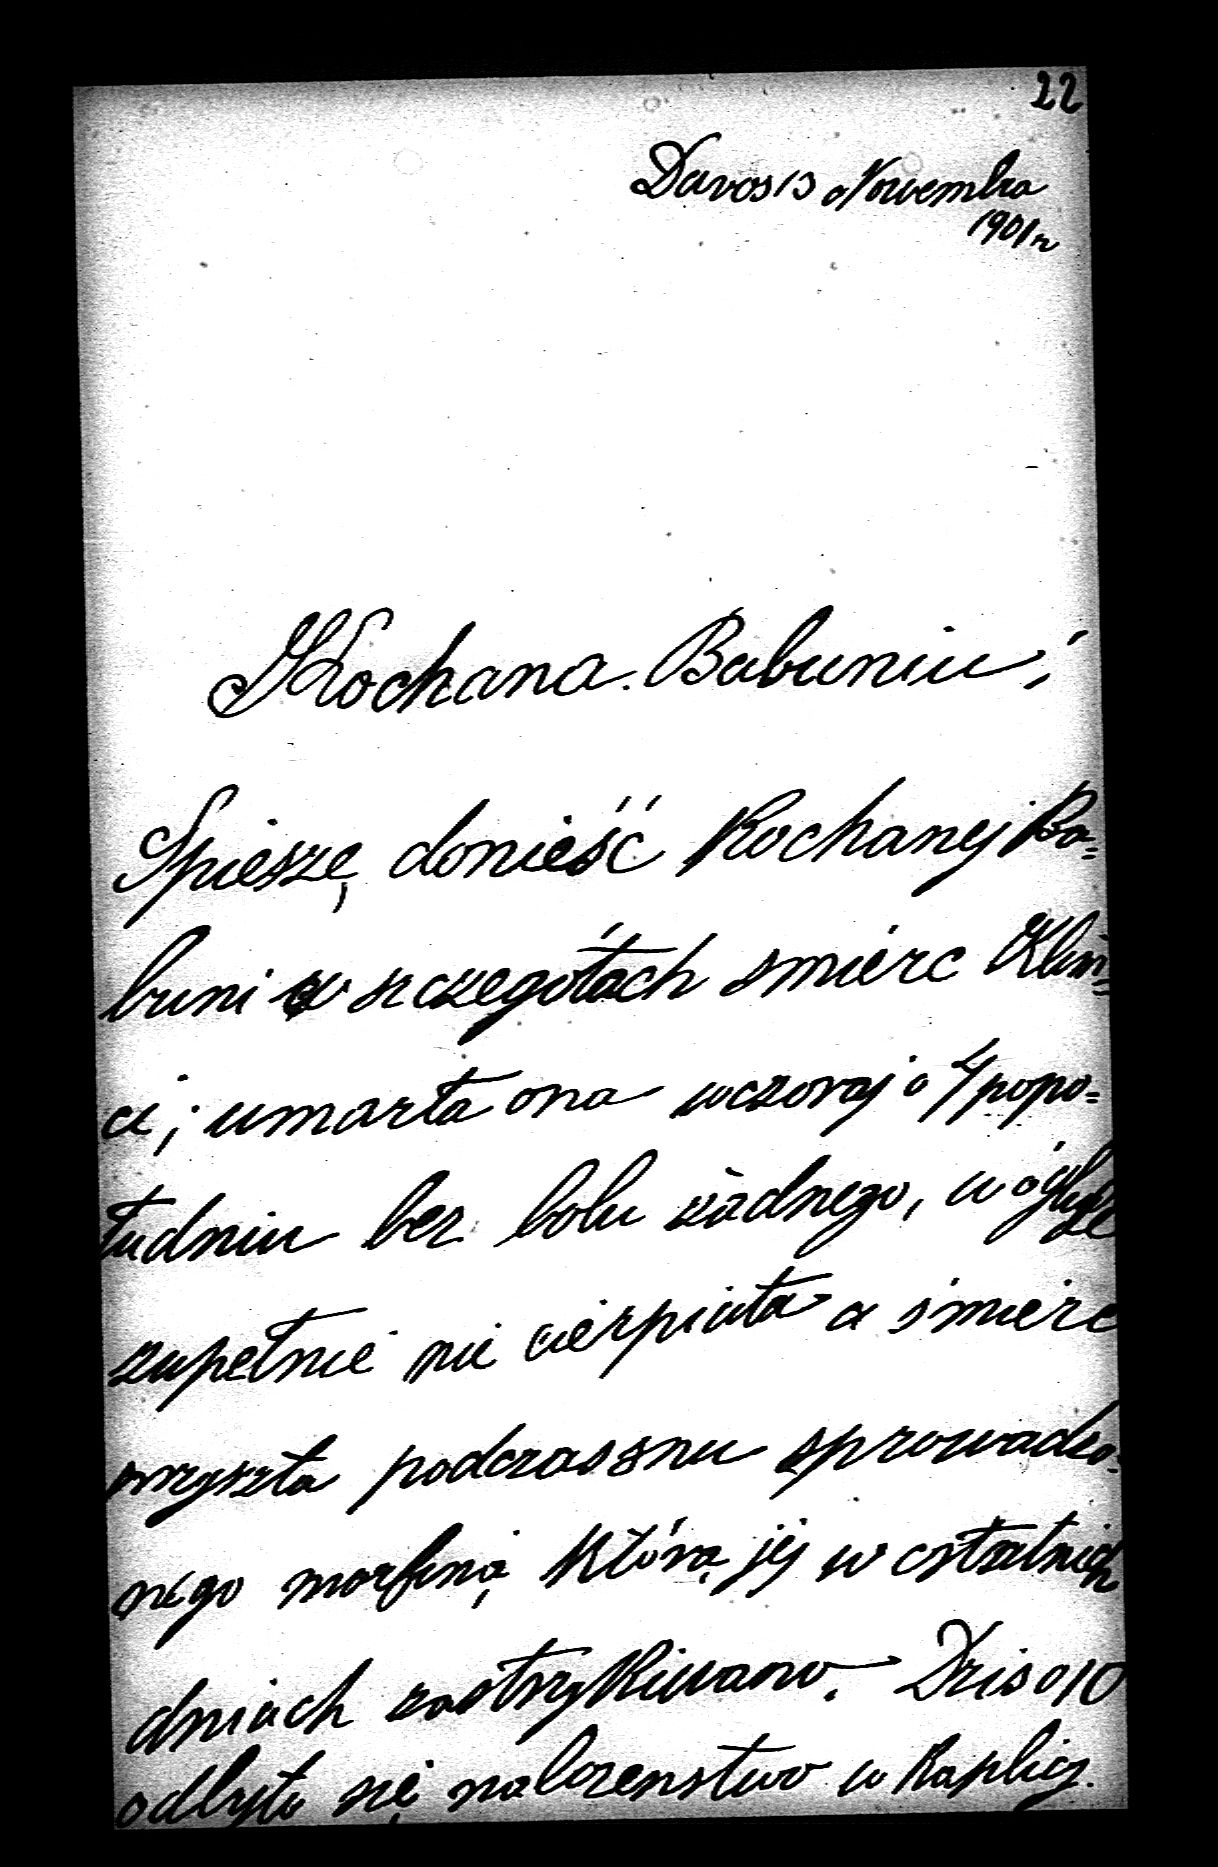 22
Davos 13 Novembra
1901 r
Kochana Babuniu!
Spieszę donieść Kochanej Ba=
buni w szczegółach smierć
ci; umarła ona wczoraj o 4 popo=
łudniu bez bolu żadnego, w ogóle
zupełnie nie cierpiała a śmierć
przyszła podczas snu sprowadzo-
nego morfiną którą jej w ostatnich
dniach zastrzykiwano. Dzis o 10
odbyło się nabożenstwo w Kaplicy.